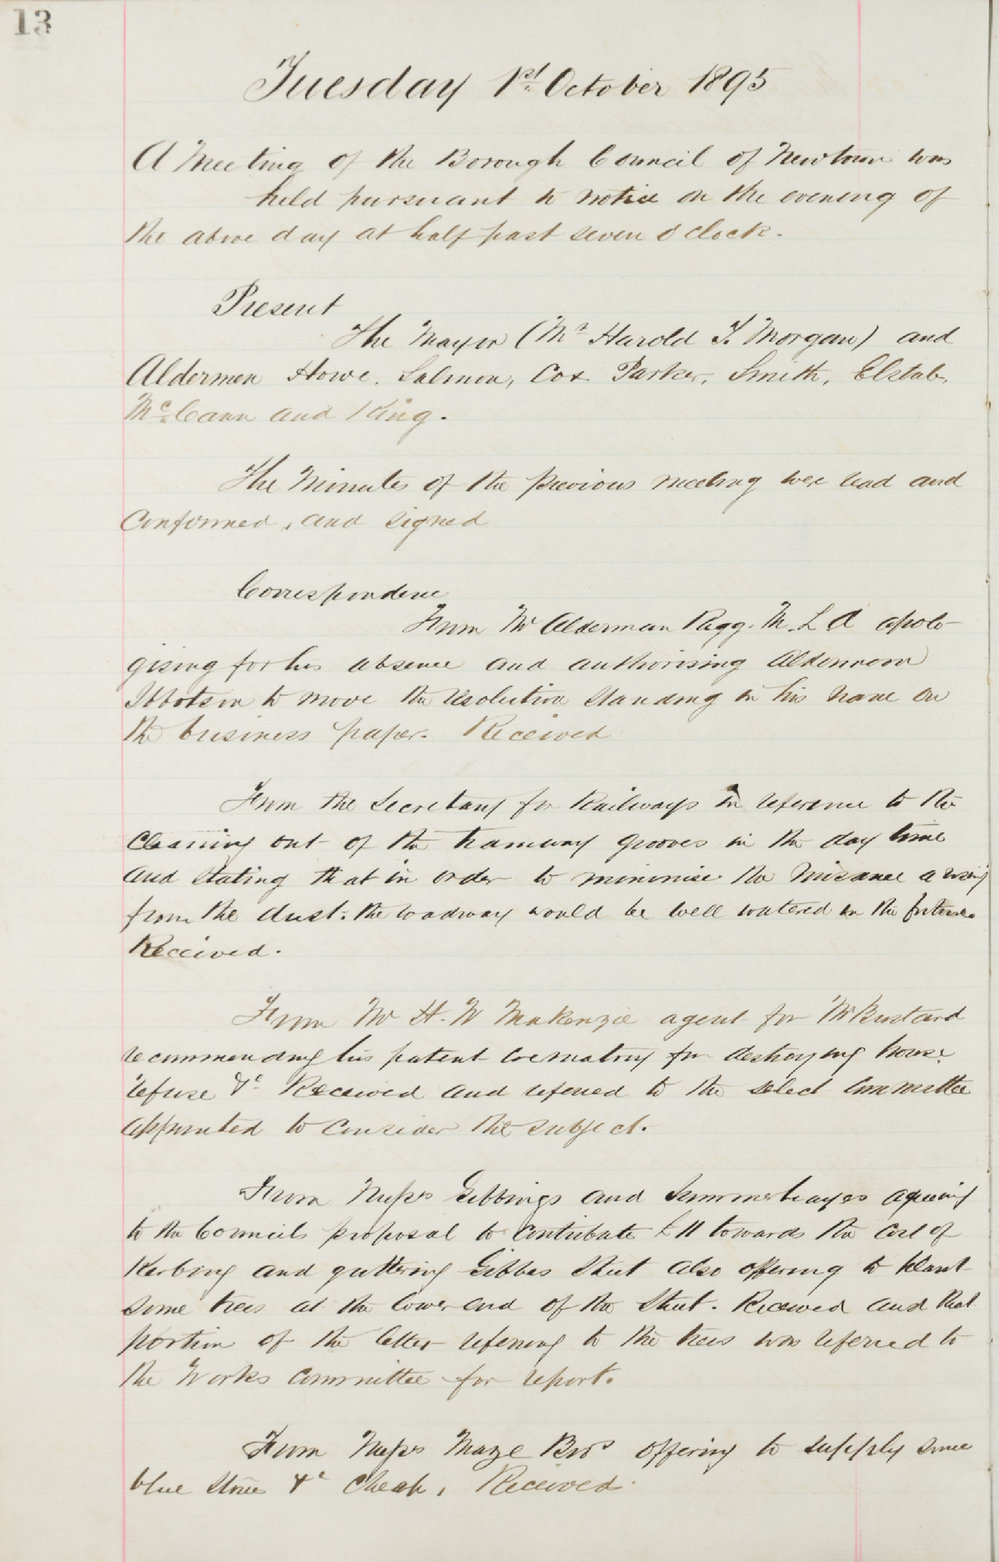 13
Tuesday 1st October 1895
A Meeting of the Borough Council of Newtown was
held pursuant to notice on the evening of
the above day at half past seven o'clock.
Present
The Mayor (Mr Harold F. Morgan) and
Aldermen Howe, Salmon, Cox Parker, Smith, Elstub,
McCann and King.
The Minutes of the previous meeting were read and
confirmed, and signed
Correspondence
From Mr Alderman Rigg. M.L.A apolo-
gising for his absence and authorising Alderman
Ibbotson to move the resolution standing in his name on
the business paper. Received
From the Secretary for Railways in reference to the
cleaning out of the tramway grooves in the day time
and stating that in order to minimise the nuisance arising
from the dust. the roadway would be well watered in the future.
Received.
From Mr H. W Makenzie agent for Mr Bustard
recommending his patent crematory for destroying house
refuse &c Received and referred to the select committee
appointed to consider the subject.
From Messrs Gibbings and Summerhayes agreeing
to the Councils proposal to contribute £11 towards the cost of
Kerbing and guttering Gibbes Street also offering to plant
some trees at the lower end of the Street. Received and that
portion of the letter referring to the trees was referred to
the Works committee for report.
From Messrs Maze Bros offering to supply some
blue stone &c cheap, Received